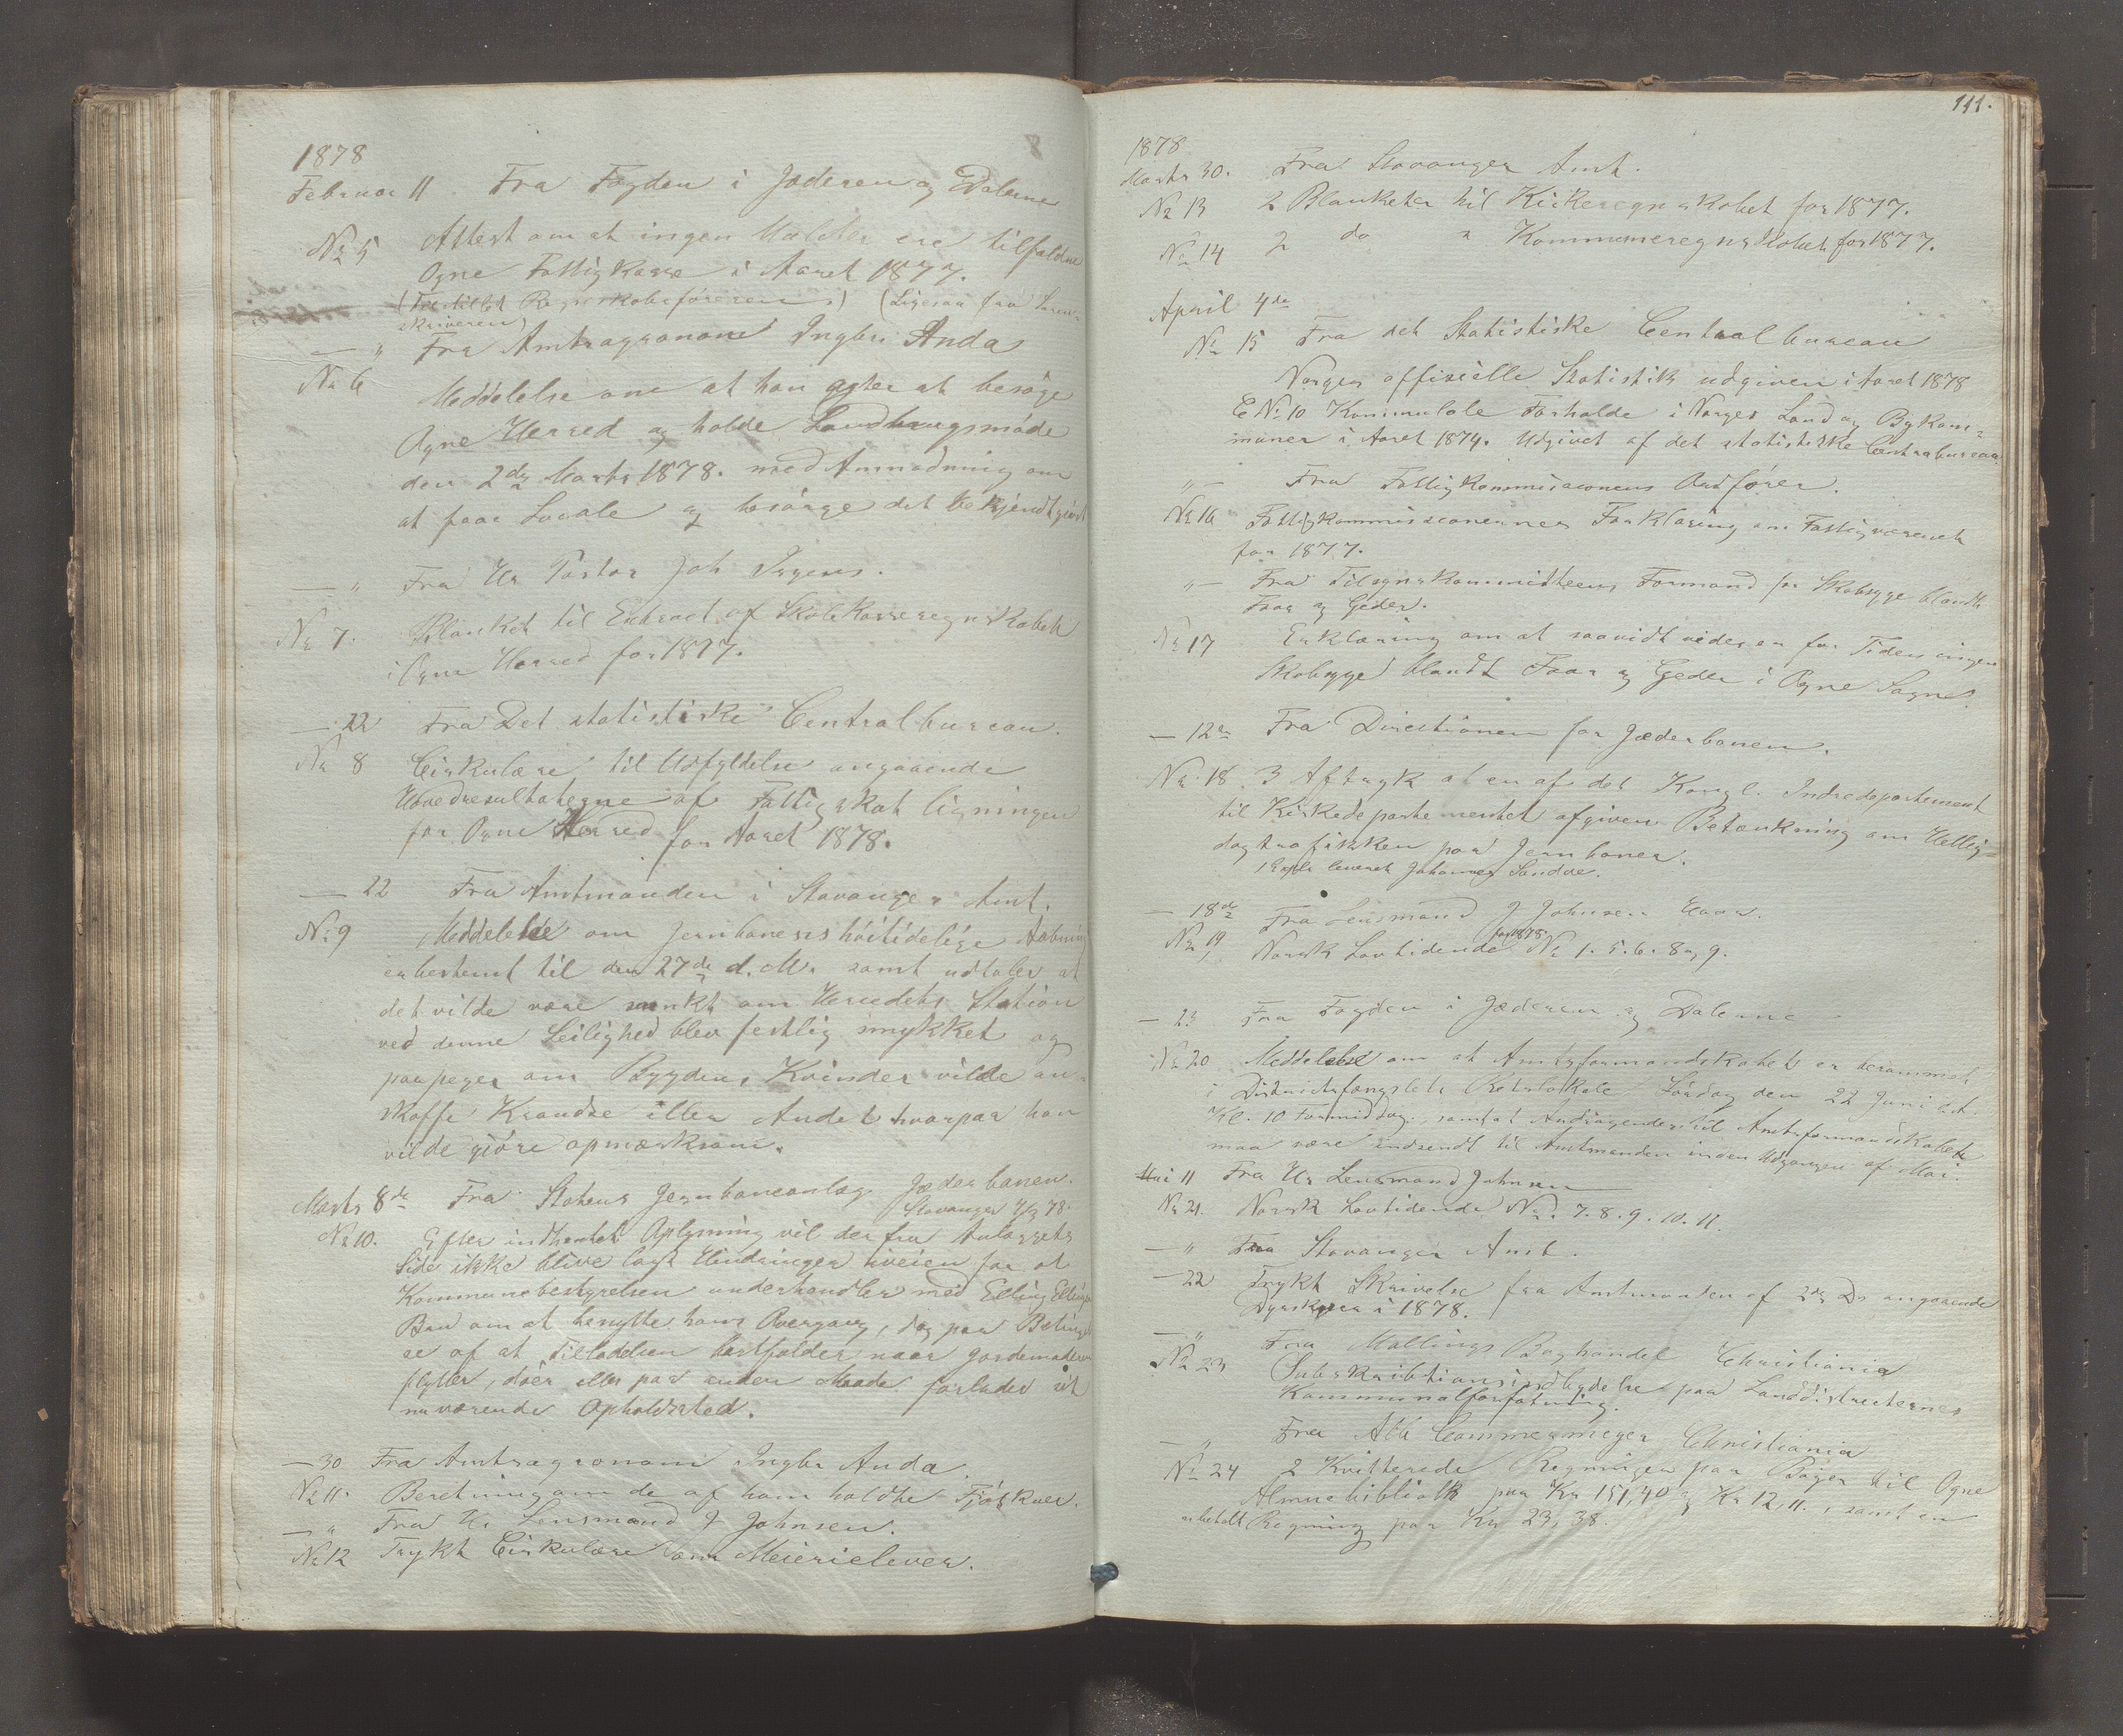 1878
Februar 11 Fra Fogden i Jæderen og Dalerne
No 5 Attest om at ingen Mulcter ere tilfaldne
Ogne Fattigkasse i Aaret 1877.
(Tilstillet Regnskabsføreren.) (Ligesaa fra Soren-
skriveren)
— " Fra Amtsagronom Ingbr. Anda
No 6 Meddelelse om at han agter at besøge
Ogne Herred og holde Landbrugsmøde
den 2de Marts 1878. med Anmodning om
at faae Locale og besørge det bekjendtgjort
— " Fra Hr Pastor Joh
No 7. Blanket til Extract af Skolekasseregnskabet
i Ogne Herred for 1877.
— 22 Fra Det statistiske Centralbureau.
No 8 Cirkulære til Udfyldelse angaaende
Hovedresultaterne af Fattigskatligningen
for Ogne Herred for Aaret 1878.
— 22 Fra Amtmanden i Stavanger Amt.
No 9 Meddelelse om Jernbanens høitidelige Aabning
er bestemt til den 27de d.M. samt udtaler at
det vilde være ønskt om Herredets Station
ved denne Leilighed blev festlig smykket og
paapeger om Bygdens Kvinder vilde an-
skaffe Krandse eller Andet hvorpaa han
vilde gjöre opmærksom.
Marts 8de Fra Statens Jernbaneanlæg Jæderbanen.
Stavanger 4/3 78.
No 10. Efter indhentet Oplysning vil der fra Anlæggets
Side ikke blive lagt Hindringer iveien for at
Kommunebestyrelsen underhandler med Elling Ellingsen
om at benytte hans Overgang, dog paa Betingel
se af at Tilladelsen bortfalder naar Jordemoderen
flytter, döer eller paa anden Maade forlader sit
nuværende Opholdssted.
— 30 Fra Amtsagronom Ingbr Anda
No 11. Beretning om de af ham holdte Fjøskuer.
— " Fra Hr Lensmand J Johnsen.
No 12 Trykt Cirkulære om Meierielever.
111.
1878
Marts 30. Fra Stavanger Amt.
No 13 2 Blanketer til Kirkeregnskabet for 1877.
No 14 2 do " Kommuneregnskabet for 1877.
April 4de
No 15 Fra det Statistiske Centralbureau
Norges officielle Statistik udgiven i Aaret 1878
C No 10 Kommunale Forholde i Norges Land og Bykom-
muner i Aaret 1874. Udgivet af det statistiske Centralbureau
" — Fra Fattigkommissionens Ordfører.
No 16 Fattigkommissionernes Forklaring om Fattigvæsenet
for 1877.
" — Fra Tilsynskommitteens Formand for Skabsyge blandt
Faar og Geder.
No 17 Erklæring om at saavidt vides er for Tiden ingen
Skabsyge blandt Faar og Geder i Ogne Sogn.
— 12te Fra Directionen for Jæderbanen.
No 18. 3 Aftryk at en af det Kongl. Indredepartement
til Kirkedepartementet afgiven Betænkning om Hellig-
dagtrafikken paa Jernbaner.
1 Expl. leveret Johannes Sandve.
— 18de Fra Lensmand J Johnsen Haar.
No 19 Norsk Lovtidende for 1878 No 1. 5. 6. 8 og 9.
— 23 Fra Fogden i Jæderen og Dalerne
No 20 Meddelelse om at Amtsformandskabet er berammet
i Districtsfængslets Retslokale Lørdag den 22 Juni d.A.
Kl. 10 Formiddag, samt at Andragender til Amtsformandskabet
maa være indsendt til Amtmanden inden Udgangen af Mai.
Mai 11 Fra Hr Lensmand Johnsen
No 21. Norsk Lovtidende No. 7. 8. 9. 10. 11.
— " Fra Stavanger Amt.
— 22 Trykt Skrivelse fra Amtmanden af 2de Ds angaaende
Dyrskuer i 1878.
— " Fra Mallings Boghandel Christiania
No 23 Subskribtionsindbydelse paa Landdistricternes
Kommunalforfatning.
— " Fra Alb Cammermeyer Christiania
No 24 2 Kvitterede Regninger paa Bøger til Ogne
Almuebibliothek paa Kr 151,40 og Kr 12,11., samt en
ubetalt Regning paa Kr 23,38.